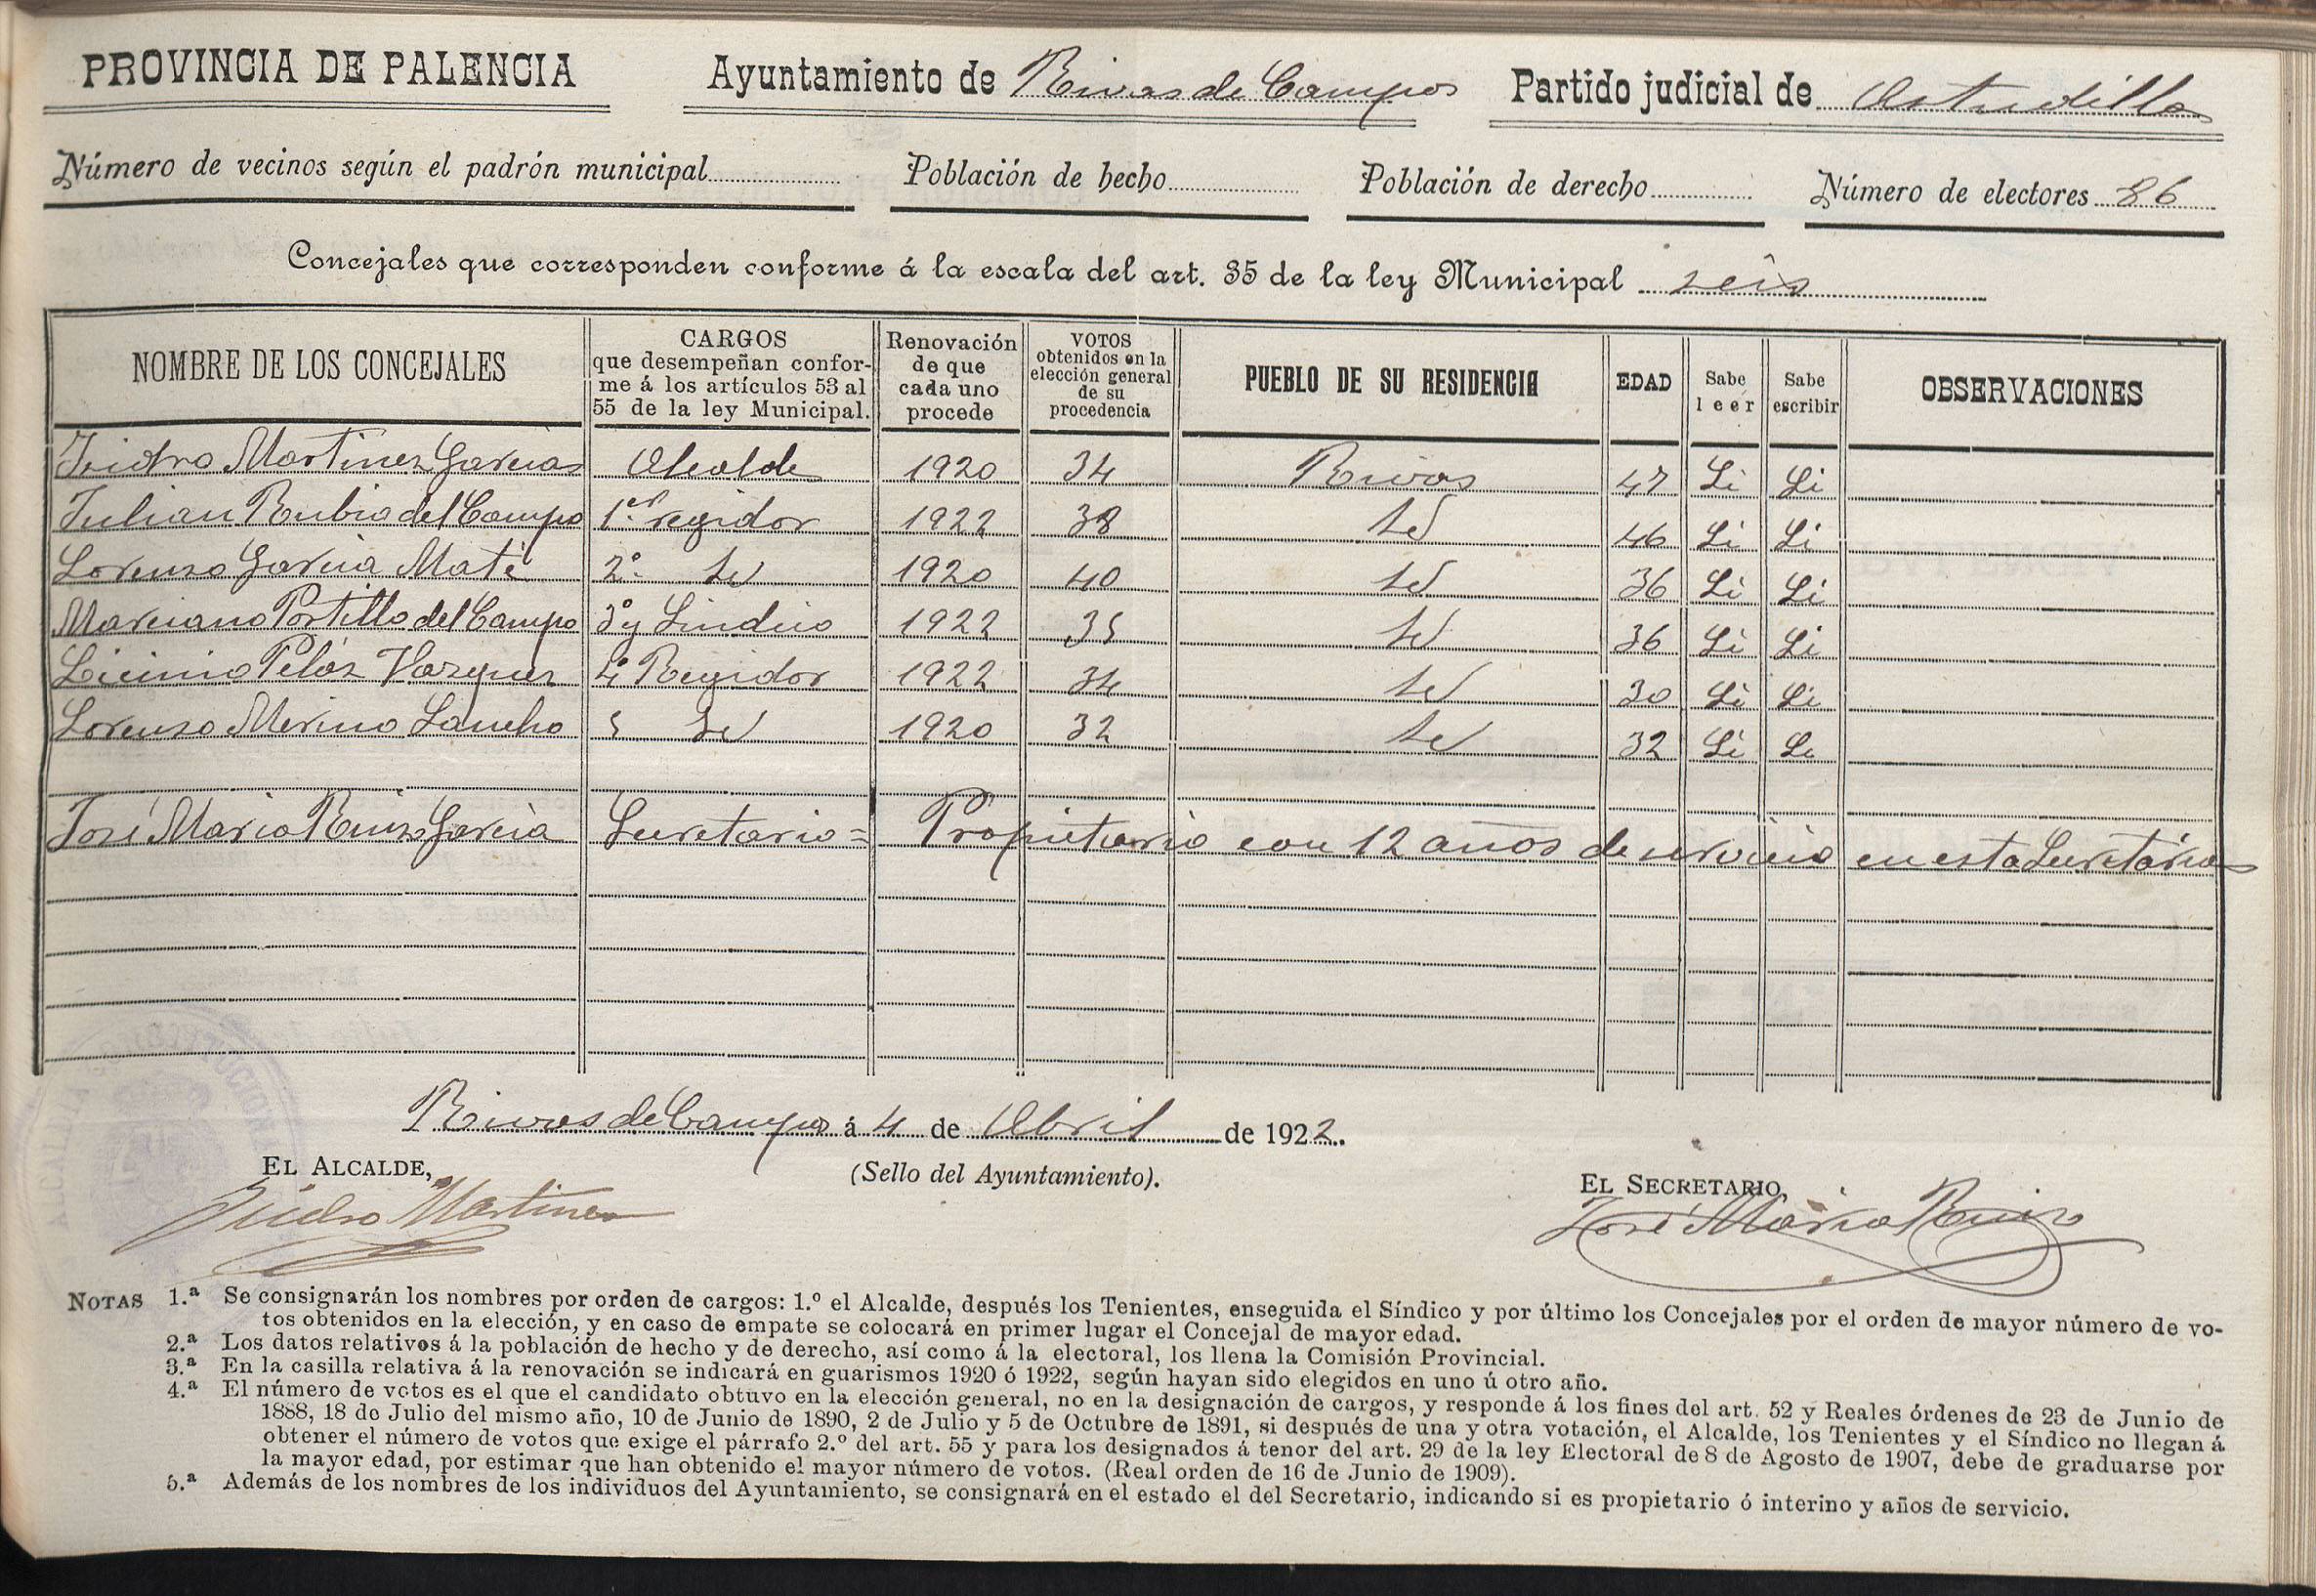 PROVINCIA DE PALENCIA Ayuntamiento de Rivas de Campos Partido judicial de Astudillo
Número de vecinos según el padrón municipal Población de hecho Población de derecho Número de electores 86
Concejales que corresponden conforme á la escala del art. 35 de la ley Municipal seis
NOMBRE DE LOS CONCEJALES
CARGOS
que desempeñan confor-
me á los artículos 53 al
55 de la ley Municipal.
Renovación
de que
cada uno
procede
VOTOS
obtenidos en la
elección general
de su
procedencia
PUEBLO DE SU RESIDENCIA
EDAD
Sabe
leer
Sabe
escribir
OBSERVACIONES
Isidro Martinez Garcias Alcalde 1920 34 Rivas 47 Si Si
Julian Rubio del Campo 1er regidor 1922 38 Id 46 Si Si
Lorenzo Garcia Maté 2º Id 1920 40 Id 36 Si Si
Marciano Portillo del Campo 3º y Sindico 1922 35 Id 36 Si Si
Licinio Peláz Vazquez 4º Regidor 1922 34 Id 30 Si Si
Lorenzo Merino Sancho 5 Id 1920 32 Id 32 Si Si
José Maria Ruiz Garcia Secretario = Propietario con 12 años de servicio en esta Secretária
Rivas de Campos á 4 de Abril de 1922.
EL ALCALDE, (Sello del Ayuntamiento). EL SECRETARIO,
Isidro Martinez José Maria Ruiz
NOTAS 1.ª Se consignarán los nombres por orden de cargos: 1.º el Alcalde, después los Tenientes, enseguida el Síndico y por último los Concejales por el orden de mayor número de vo-
tos obtenidos en la elección, y en caso de empate se colocará en primer lugar el Concejal de mayor edad.
2.ª Los datos relativos á la población de hecho y de derecho, así como á la electoral, los llena la Comisión Provincial.
3.ª En la casilla relativa á la renovación se indicará en guarismos 1920 ó 1922, según hayan sido elegidos en uno ú otro año.
4.ª El número de votos es el que el candidato obtuvo en la elección general, no en la designación de cargos, y responde á los fines del art. 52 y Reales órdenes de 23 de Junio de
1888, 18 de Julio del mismo año, 10 de Junio de 1890, 2 de Julio y 5 de Octubre de 1891, si después de una y otra votación, el Alcalde, los Tenientes y el Síndico no llegan á
obtener el número de votos que exige el párrafo 2.º del art. 55 y para los designados á tenor del art. 29 de la ley Electoral de 8 de Agosto de 1907, debe de graduarse por
la mayor edad, por estimar que han obtenido el mayor número de votos. (Real orden de 16 de Junio de 1909).
5.ª Además de los nombres de los individuos del Ayuntamiento, se consignará en el estado el del Secretario, indicando si es propietario ó interino y años de servicio.